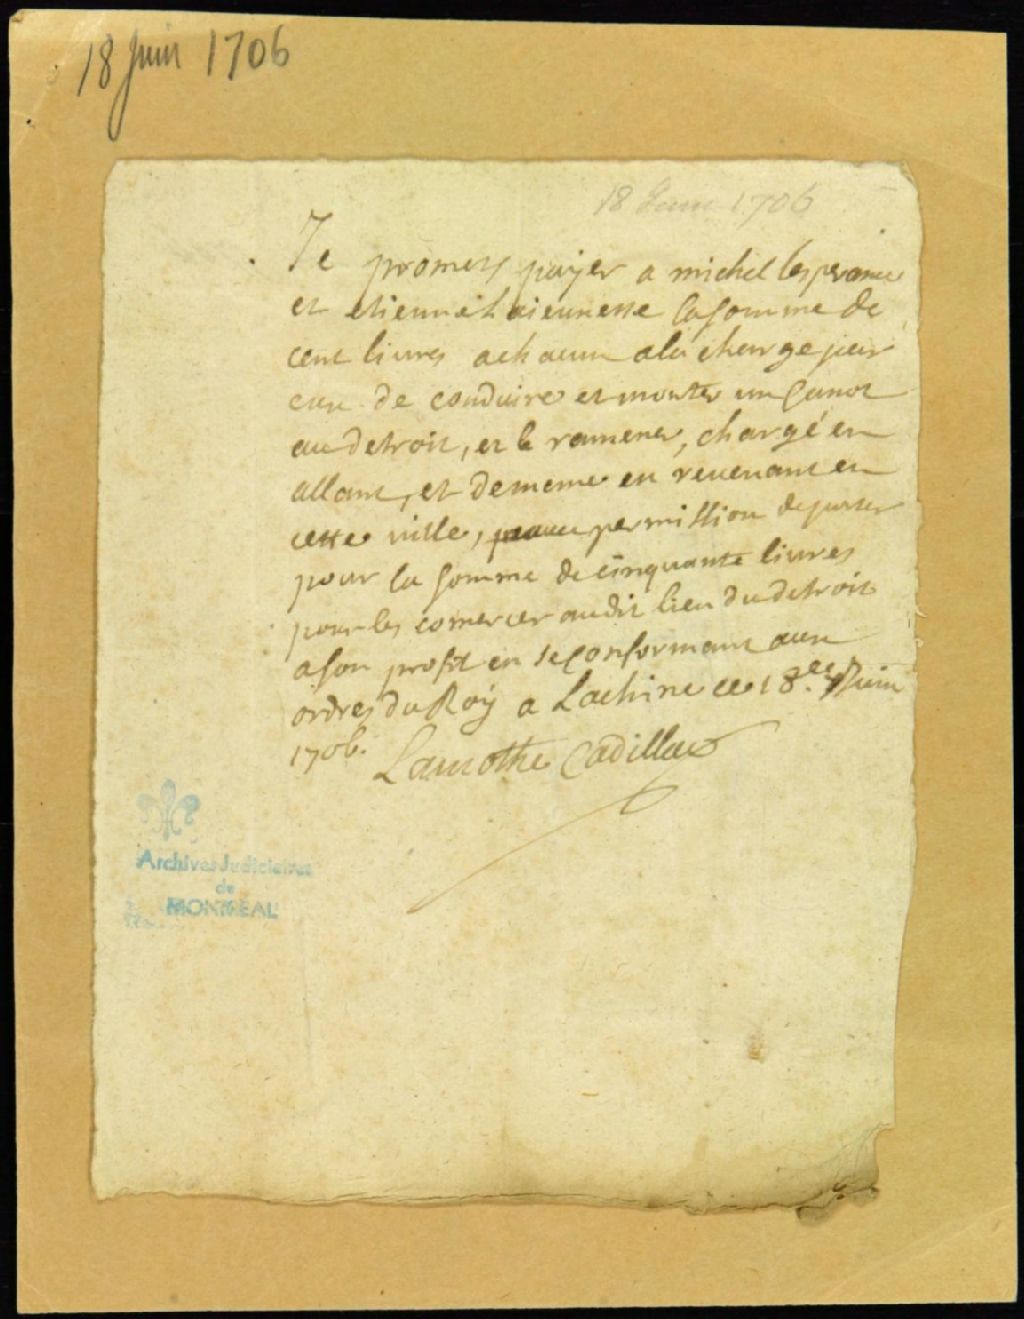 18 Juin 1706
18 Juin 1706
Je promets payer a michel lesperance
et etienne Laieunesse la somme de
cent livres a chacun a la charge par
eux de conduire et monter un Canot
au detroit, et le ramener, chargé en
allant, et de meme en revenant en
cette ville, permission de porter
pour la somme de cinquante livres
pour les comercer audit lieu du detroit
a son profit en se conformant aux
ordres du Roy a Lachine ce 18.e Juin
1706. Lamothe Cadillac
Archives Judiciaires
de
MONTREAL